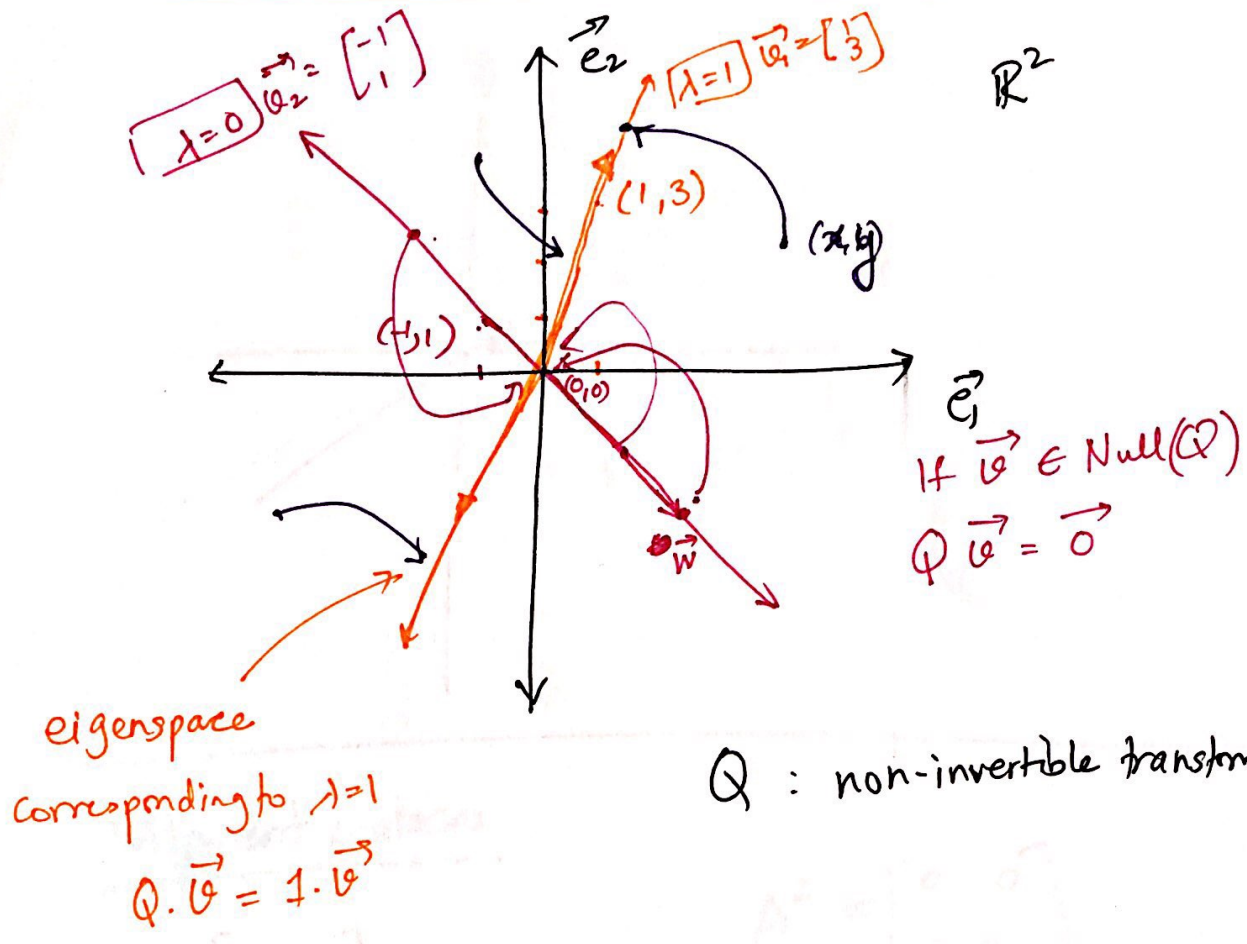 λ=0 v⃗₂ = [-1 1]
e⃗₂
λ=1 v⃗₁ = [1 3]
ℝ²
(1,3)
(x,y)
(-1,1)
(0,0)
e⃗₁
If v⃗ ∈ Null(Q)
Q v⃗ = 0⃗
w⃗
eigenspace
corresponding to λ=1
Q. v⃗ = 1. v⃗
Q : non-invertible transfor